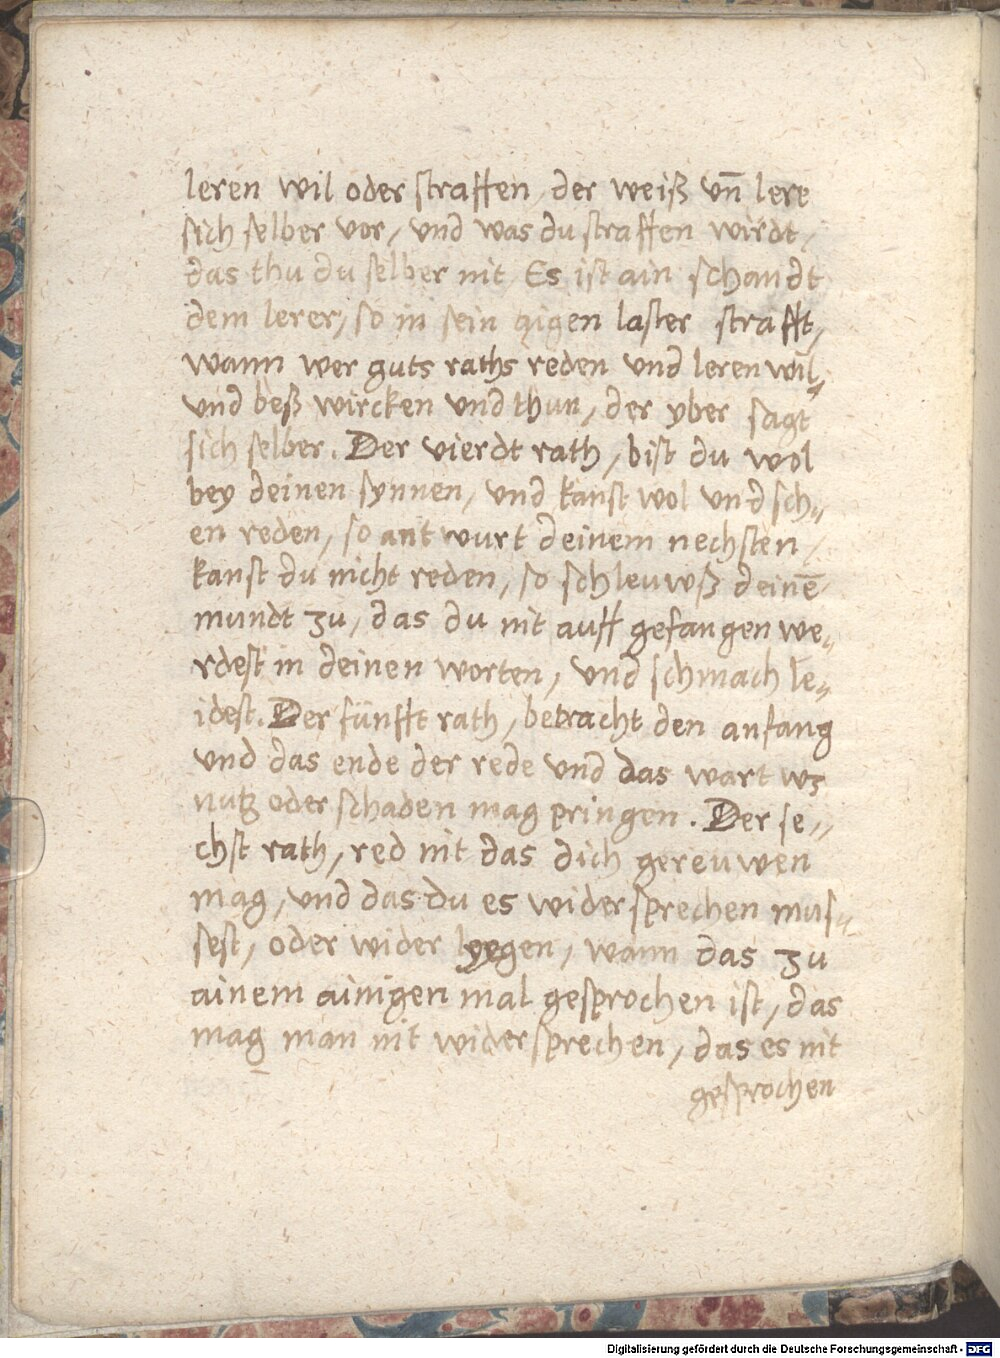 leren wil oder straffen, der weiß vn̄ lere
sich selber vor, vnd was du straffen wirdt,
das thu du selber nit Es ist ain schandt
dem lerer, so in sein aigen laster strafft,
wann wer guts raths reden vnd leren wil,,
vnd beß wircken vnd thun, der yber sagt
sich selber. Der vierdt rath, bist du wol
bey deinen synnen, vnd kanst wol vnd sch,,
en reden, so antwurt deinem nechsten,
kanst du nicht reden, so schleuwß deinē
mundt zu, das du nit auff gefangen we,,
rdest in deinen worten, vnd schmach le,,
idest. Der fünfft rath, betracht den anfang
vnd das ende der rede vnd das wart wz
nutz oder schaden mag pringen. Der se,,
chst rath, red nit das dich gereuwen
mag, vnd das du es wider sprechen mus,,
sest, oder wider gen, wann das zu
ainem ainigen mal gesprochen ist, das
mag man nit wider sprechen, das es nit
gesprochen
Digitalisierung gefördert durch die Deutsche Forschungsgemeinschaft - DFG